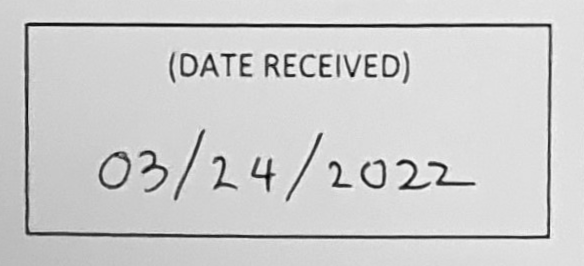 (DATE RECEIVED)
03/24/2022